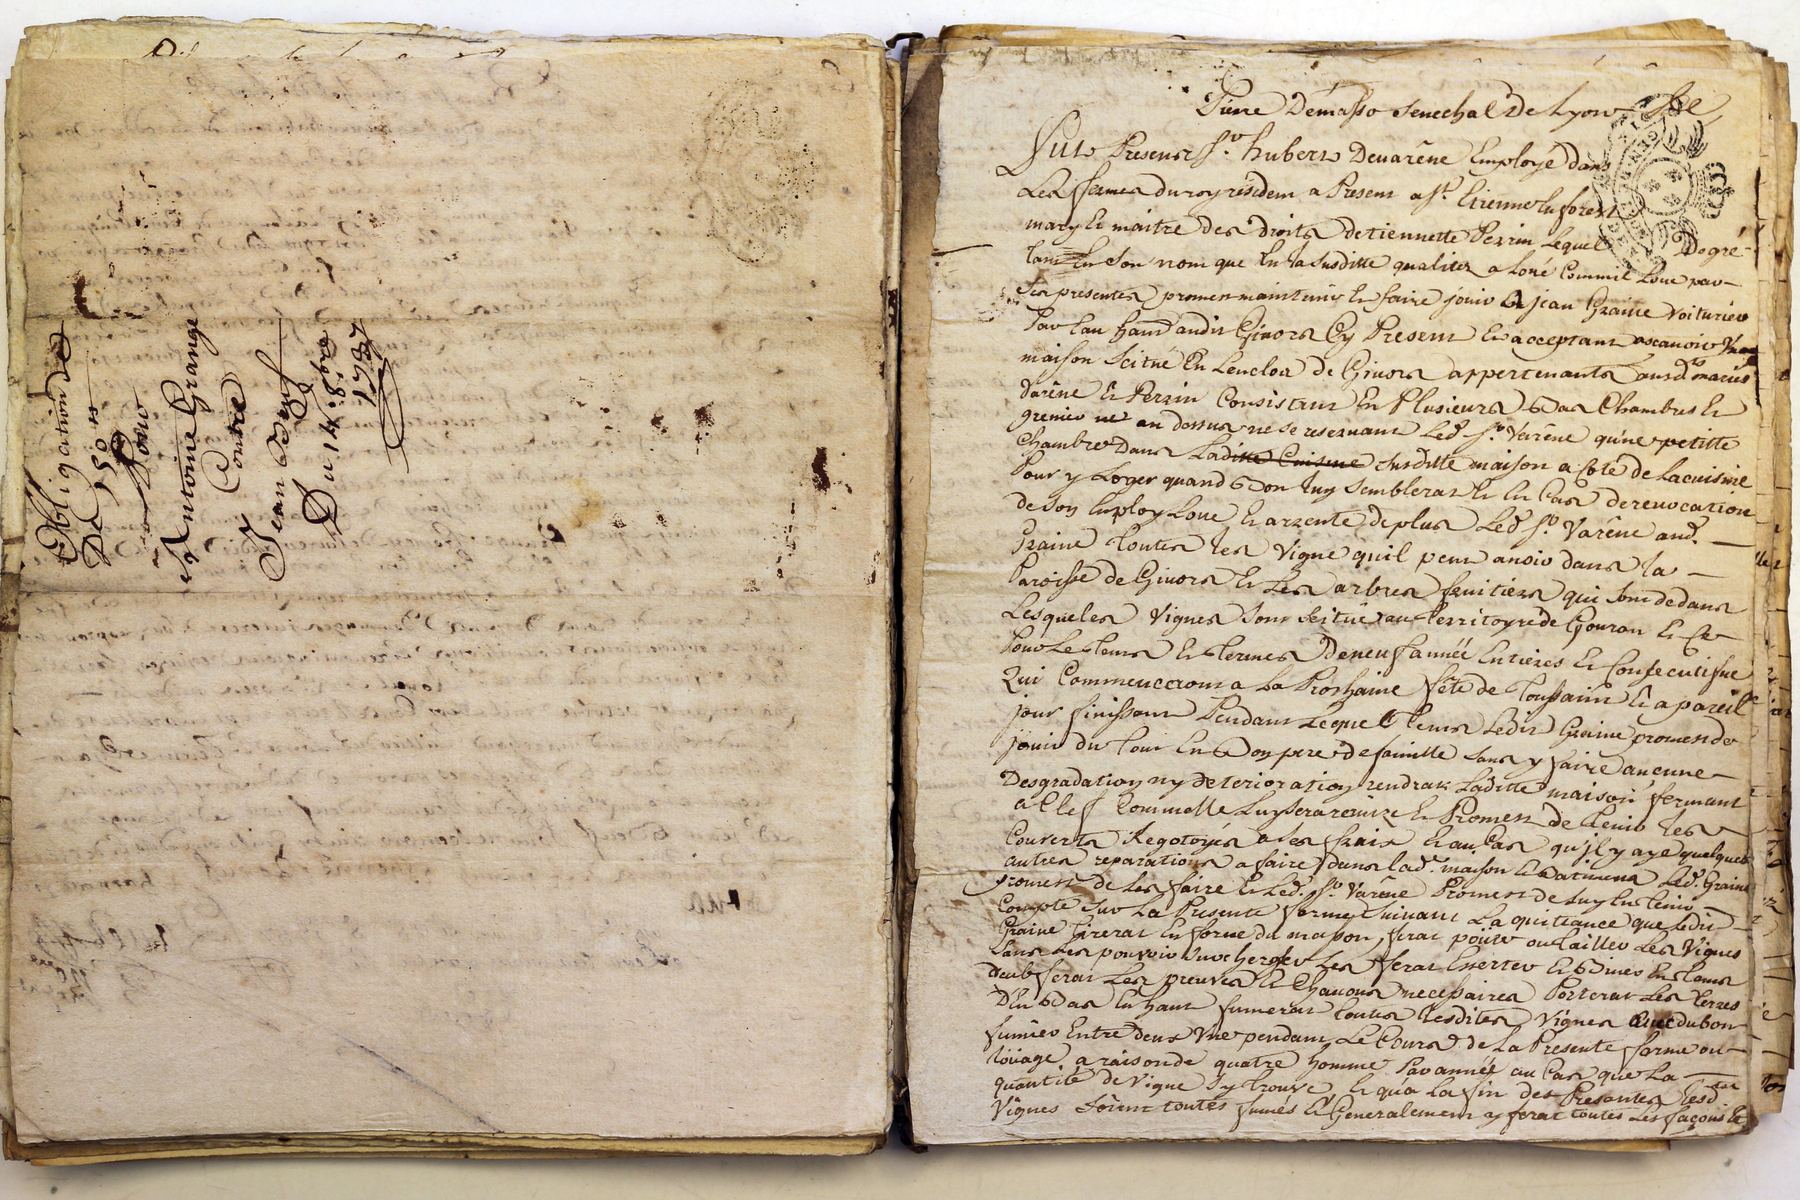 Obligation de
De 150 ll
Pour
Antoine Grange
Contre
Jean
Du 14: 8bre
1737
Pierre Demasso senechal de Lyon
Fut Present sr. hubert Devarêne Employé dans
Les fermes du roy residem a Present a st. Etienne en forest
mary Et maitre des droits detiennette Perrin Lequel Degré-
tant En Son nom que En sa susditte qualitez a Loué Comme il Loue par-
ses presentes promet maintenir Et faire jouir a jean Graine voiturier
Par Eau audit Givors Cy Present Et acceptant ascavoir Une
maison Scitué En Lenclos de Givors appertenants ausdts maries
Varêne Et Perrin Consistant En Plusieurs bas Chambres Et
grenier au dessus ne se reservant Led. sr. Varêne qu'une petitte
Chambre Dans Laditte Cuisine susditte maison a Coté de La cuisine
Pour y Loger quand bon Luy semblerat Et En Cas de revocation
de son Employ Loue Et arrente de plus Led. sr. Varêne aud.
Graine toutes les vigne quil peut avoir dans la
Paroisse de Givors Et Les arbres fruitiers qui sont dedans
Lesqueles vignes sont scitué au territoyre de Gouron Et Ce
Pour Le tems Et termes De neuf année Entieres Et Consecutifue
Qui Commenceront a La Prochaine fête de Toussaint Et a pareil
jour finissent Pendant Lequel tems Ledit Graine promet de
jouir du tout En bon pere de famille sans y faire aucune
Desgradation ny deterioration rendrat Laditte maison fermant
a Clef Comm'elle Luy sera remize Et Promet de tenir les
Couverts Regotoyés a ses fraix Et au Cas qu'jl y aye quelques
autres reparations a faire dans lad. maison Et batiment Led. Graine
promet de Les faire Et Led. sr. Varêne Promet de Luy En tenir
Compte sur La Presente ferme suivant La quittance que Ledit
Graine tirerat En forme du masson, ferat poüer ou tailler Les vignes
sans Les pouvoir surcherger Les ferat Esserter Et biner En tems
deub ferat Les preuves Et Chavons necessaires Porterat Les terres
D'En bas En haut fumerat toutes Lesdites vignes avec du bon
fumier Entre deux pendant Le Cours de La Presente ferme ou
loüage a raison de quatre homme Par année au Cas que La
quantité de vigne s'y trouve Et qu'a La fin des Presantes Lesd.
Vignes soient toutes fumés Et Generalement y ferat toutes Les façons Et